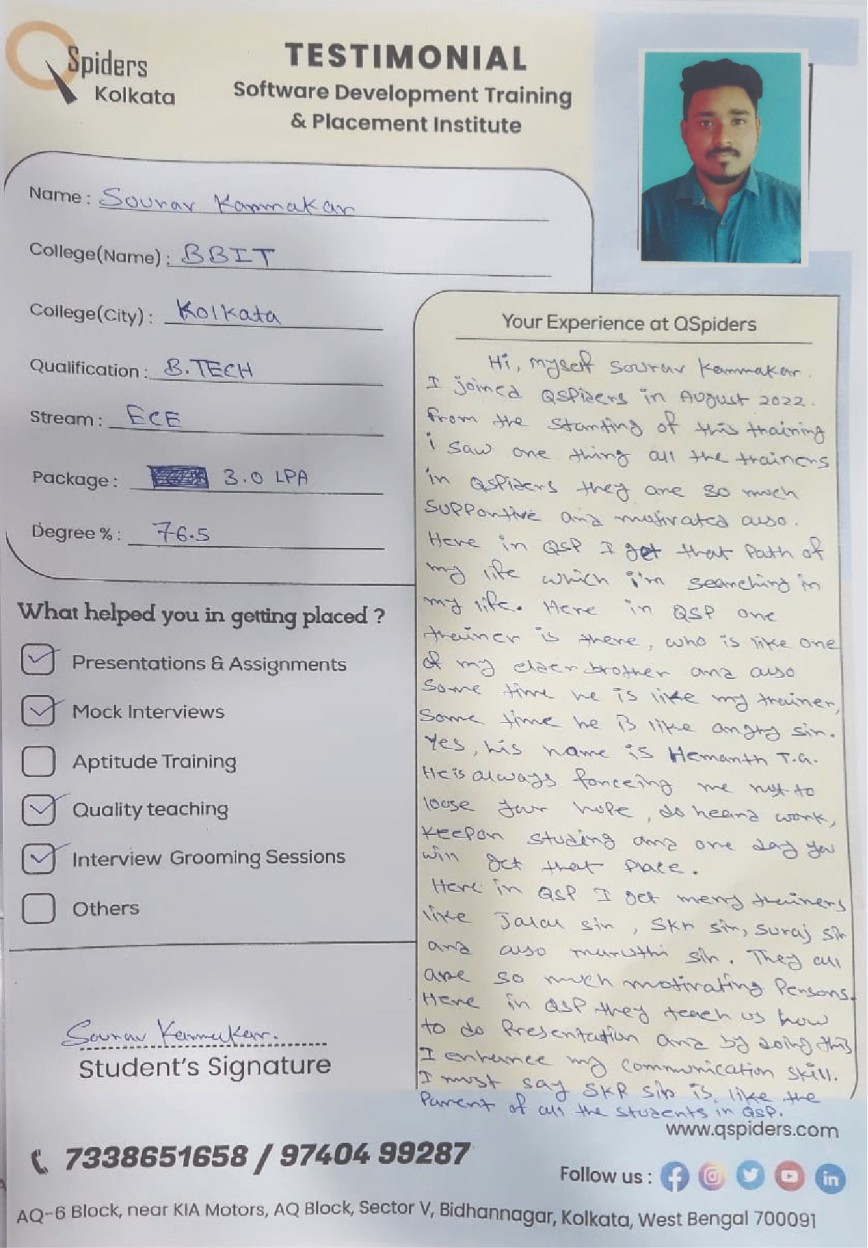 QSpiders
Kolkata
TESTIMONIAL
Software Development Training
& Placement Institute
Name : Sourav Karmakar
College(Name) : BBIT
College(City) : Kolkata
Qualification : B.TECH
Stream : ECE
Package : 3.0 LPA
Degree % : 76.5
What helped you in getting placed ?
Presentations & Assignments
Mock Interviews
Aptitude Training
Quality teaching
Interview Grooming Sessions
Others
Sourav Karmakar.
Student's Signature
Your Experience at QSpiders
Hi, myself Sourav Karmakar.
I joined QSpiders in August 2022.
From the starting of this training
i saw one thing all the trainers
in QSpiders they are so much
supportive and motivated also.
Here in QSP I get that path of
my life which i'm searching in
my life. Here in QSP one
trainer is there, who is like one
of my elder brother and also
some time he is like my trainer,
some time he is like angry sir.
Yes, his name is Hemanth T.G.
He is always forceing me not to
loose your hope, do heard work,
keep on studing and one day you
will get that place.
Here in QSP I get meny trainers
like Jalal sir, SKR sir, Suraj sir
and also maruthi sir. They all
are so much motivating persons.
Here in QSP they teach us how
to do Presentation and by doing this
I enhance my communication skill.
I must say SKR sir is like the
Parent of all the students in QSP.
www.qspiders.com
7338651658 / 97404 99287
Follow us :
AQ-6 Block, near KIA Motors, AQ Block, Sector V, Bidhannagar, Kolkata, West Bengal 700091